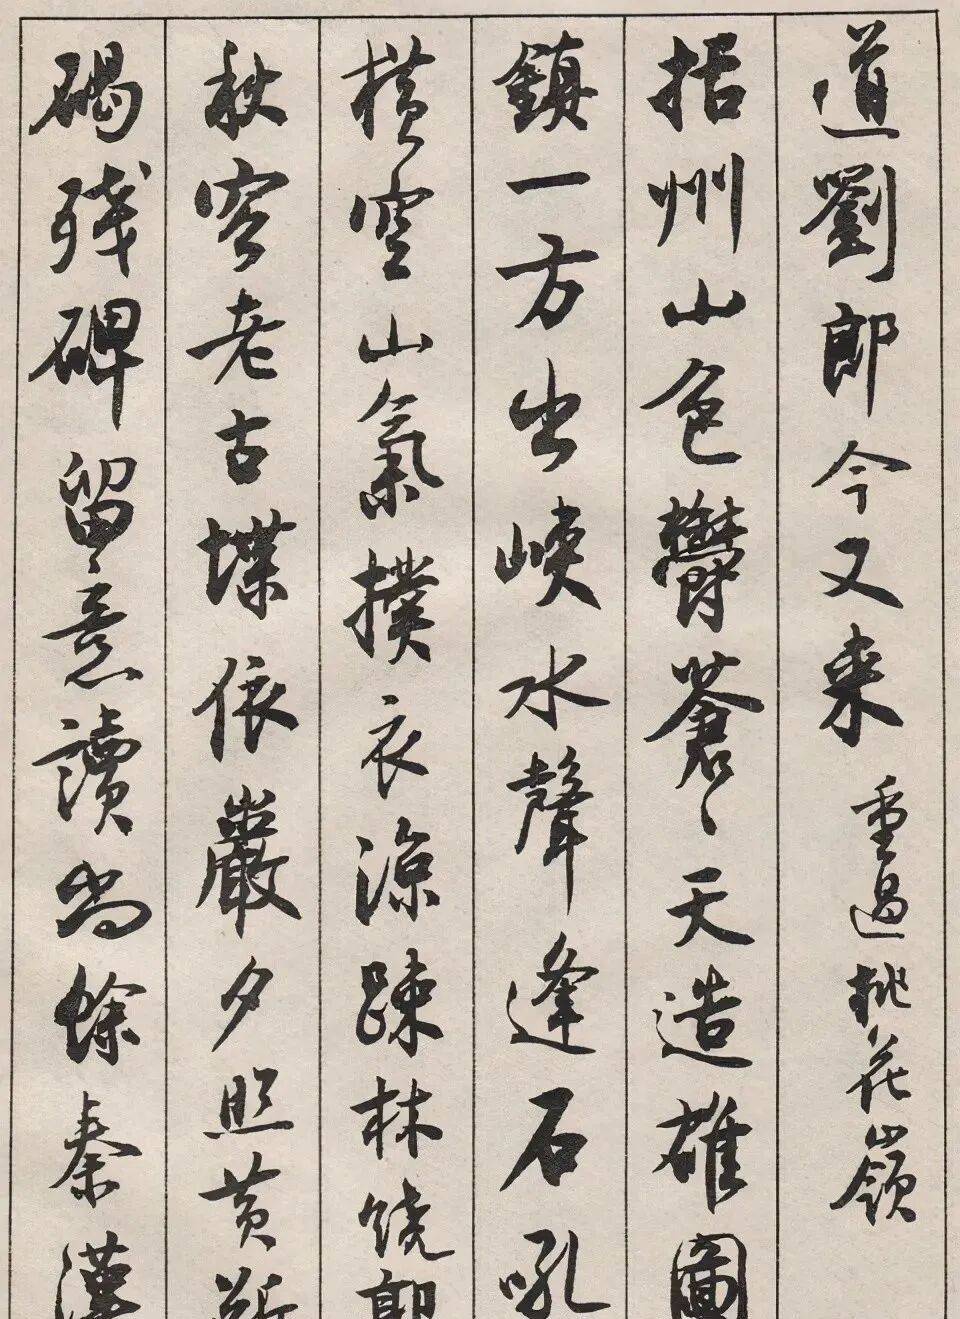 道劉郎今又来 重過桃花嶺
括州山色鬱蒼〻天造雄圖
鎮一方出峽水聲逢石吼
横空山氣撲衣涼疎林饒
秋容老古堞依巖夕照黄
碣残碑留意讀尚餘秦漢